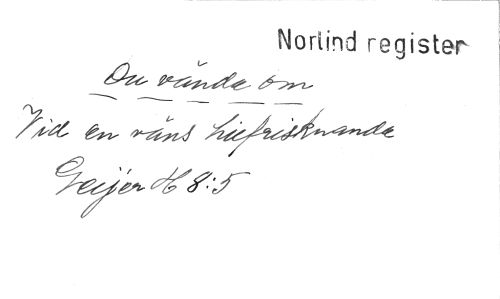 Norlind register
Du vända om
Vid en väns tillfrisknande
Geijer H 8:5